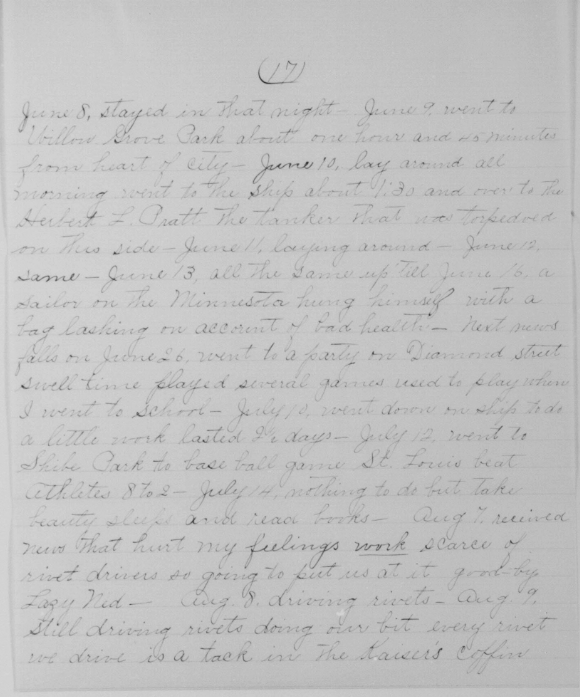 (17)
June 8, stayed in that night - June 9, went to
Willow Grove Park about one hour and 45 minutes
from heart of city - June 10, lay around all
morning went to the ship about 1:30 and over to the
Herbert L. Pratt the tanker that was torpedoed
on this side - June 11, laying around - June 12,
same - June 13, all the same up till June 16, a
sailor on the Minnesota hung himself with a
bag lashing on account of bad health - Next news
falls on June 26, went to a party on Diamond street
swell time played several games used to play when
I went to school - July 10, went down on ship to do
a little work lasted 2½ days - July 12, went to
Shibe Park to base ball game St. Louis beat
Athletes 8 to 2 - July 14, nothing to do but take
beauty sleeps and read books - Aug 7, received
news that hurt my feelings work scarce of
rivet drivers so going to put us at it good-by
Lazy Ned - Aug. 8. driving rivets - Aug 9,
Still driving rivets doing our bit every rivet
we drive is a tack in the Kaisers Coffin